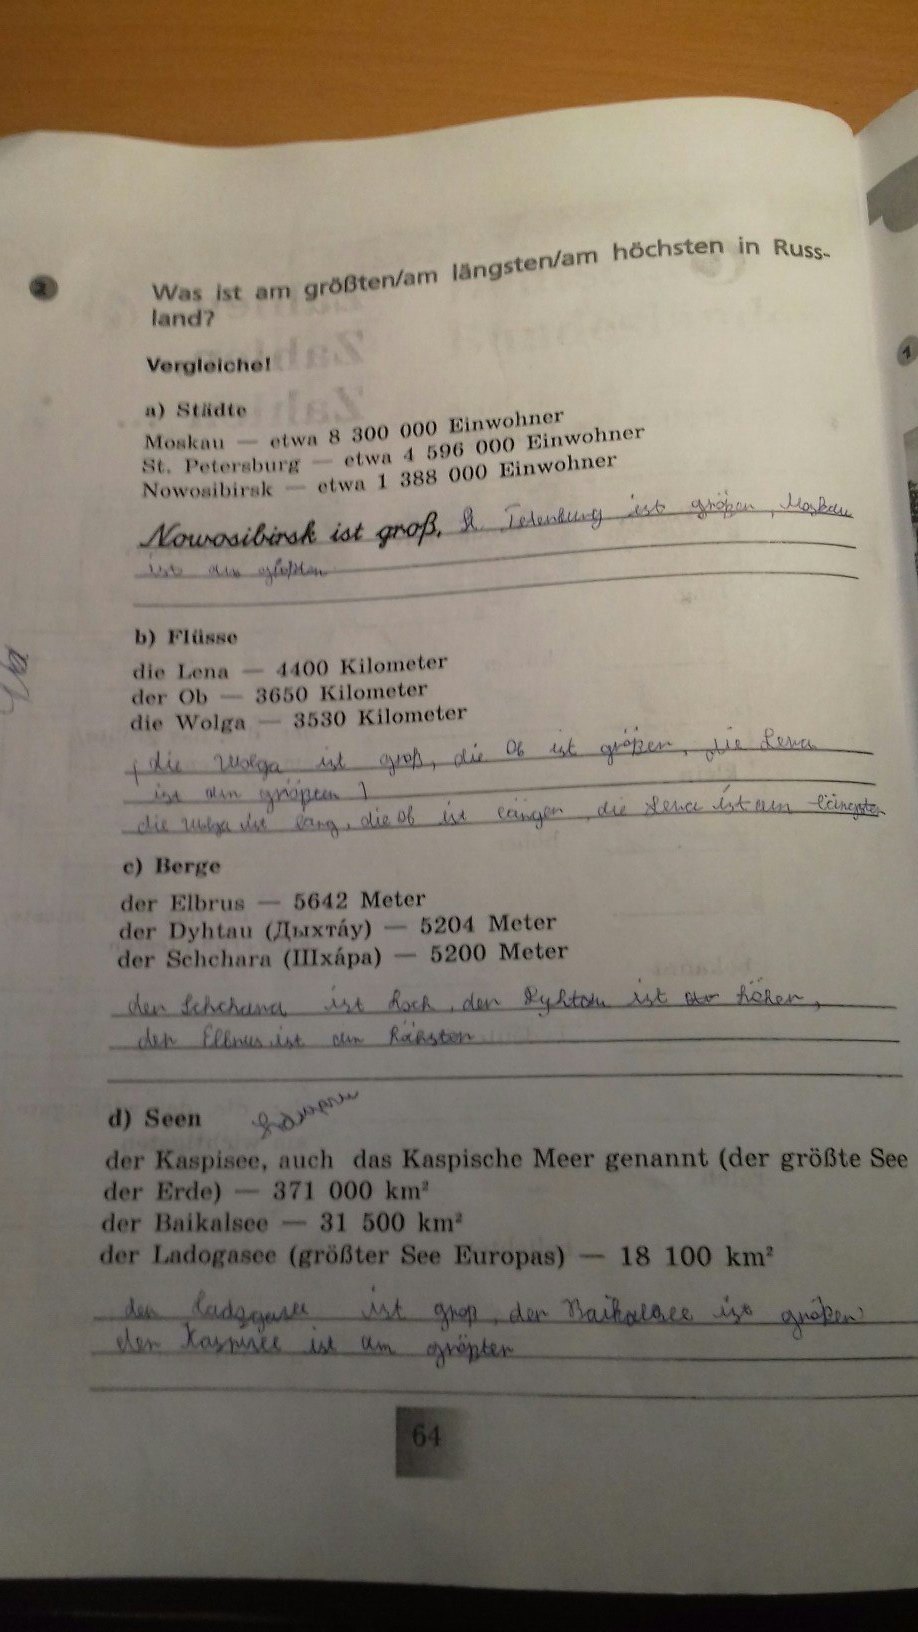 2
Was ist am größten/am längsten/am höchsten in Russ-
land?
Vergleiche!
a) Städte
Moskau — etwa 8 300 000 Einwohner
St. Petersburg — etwa 4 596 000 Einwohner
Nowosibirsk — etwa 1 388 000 Einwohner
Nowosibirsk ist groß, ist größer, Moskau
ist am größten
b) Flüsse
die Lena — 4400 Kilometer
der Ob — 3650 Kilometer
die Wolga — 3530 Kilometer
(die Wolga ist groß, die Ob ist größer, die Lena
ist am größten)
die Wolga ist lang, die Ob ist länger, die Lena ist am längsten
c) Berge
der Elbrus — 5642 Meter
der Dyhtau (Дыхта́у) — 5204 Meter
der Schchara (Шха́ра) — 5200 Meter
der Schchara ist hoch, der Dyhtau ist höher,
der Elbrus ist am
d) Seen
der Kaspisee, auch das Kaspische Meer genannt (der größte See
der Erde) — 371 000 km²
der Baikalsee — 31 500 km²
der Ladogasee (größter See Europas) — 18 100 km²
der Ladogasee ist groß, der Baikalsee ist größer
der Kaspisee ist am größten
64
1